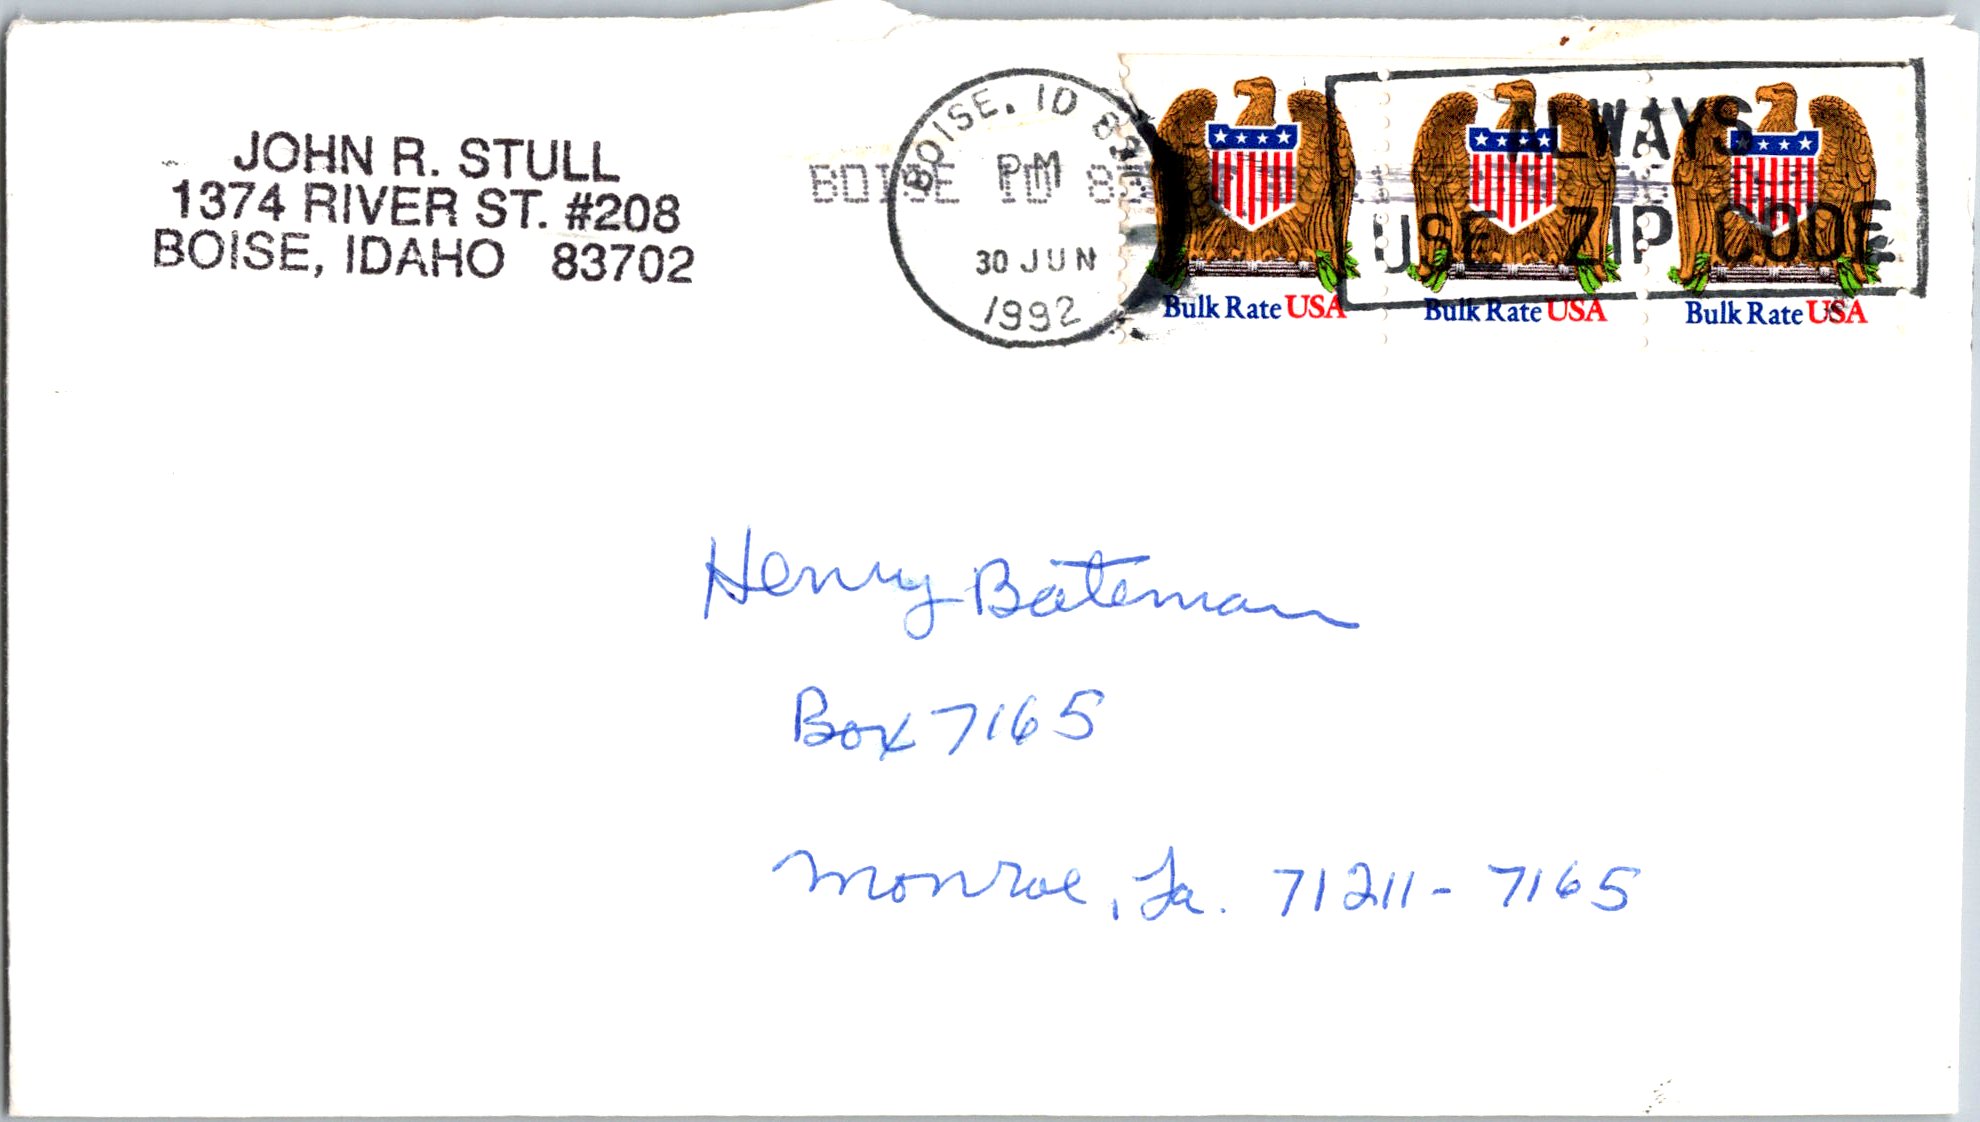 JOHN R. STULL
1374 RIVER ST. #208
BOISE, IDAHO 83702
BOISE, ID
PM
30 JUN
1992
BOISE ID
ALWAYS
USE ZIP CODE
Bulk Rate USA
Bulk Rate USA
Bulk Rate USA
Henry Bateman
Box 7165
Monroe, La. 71211-7165